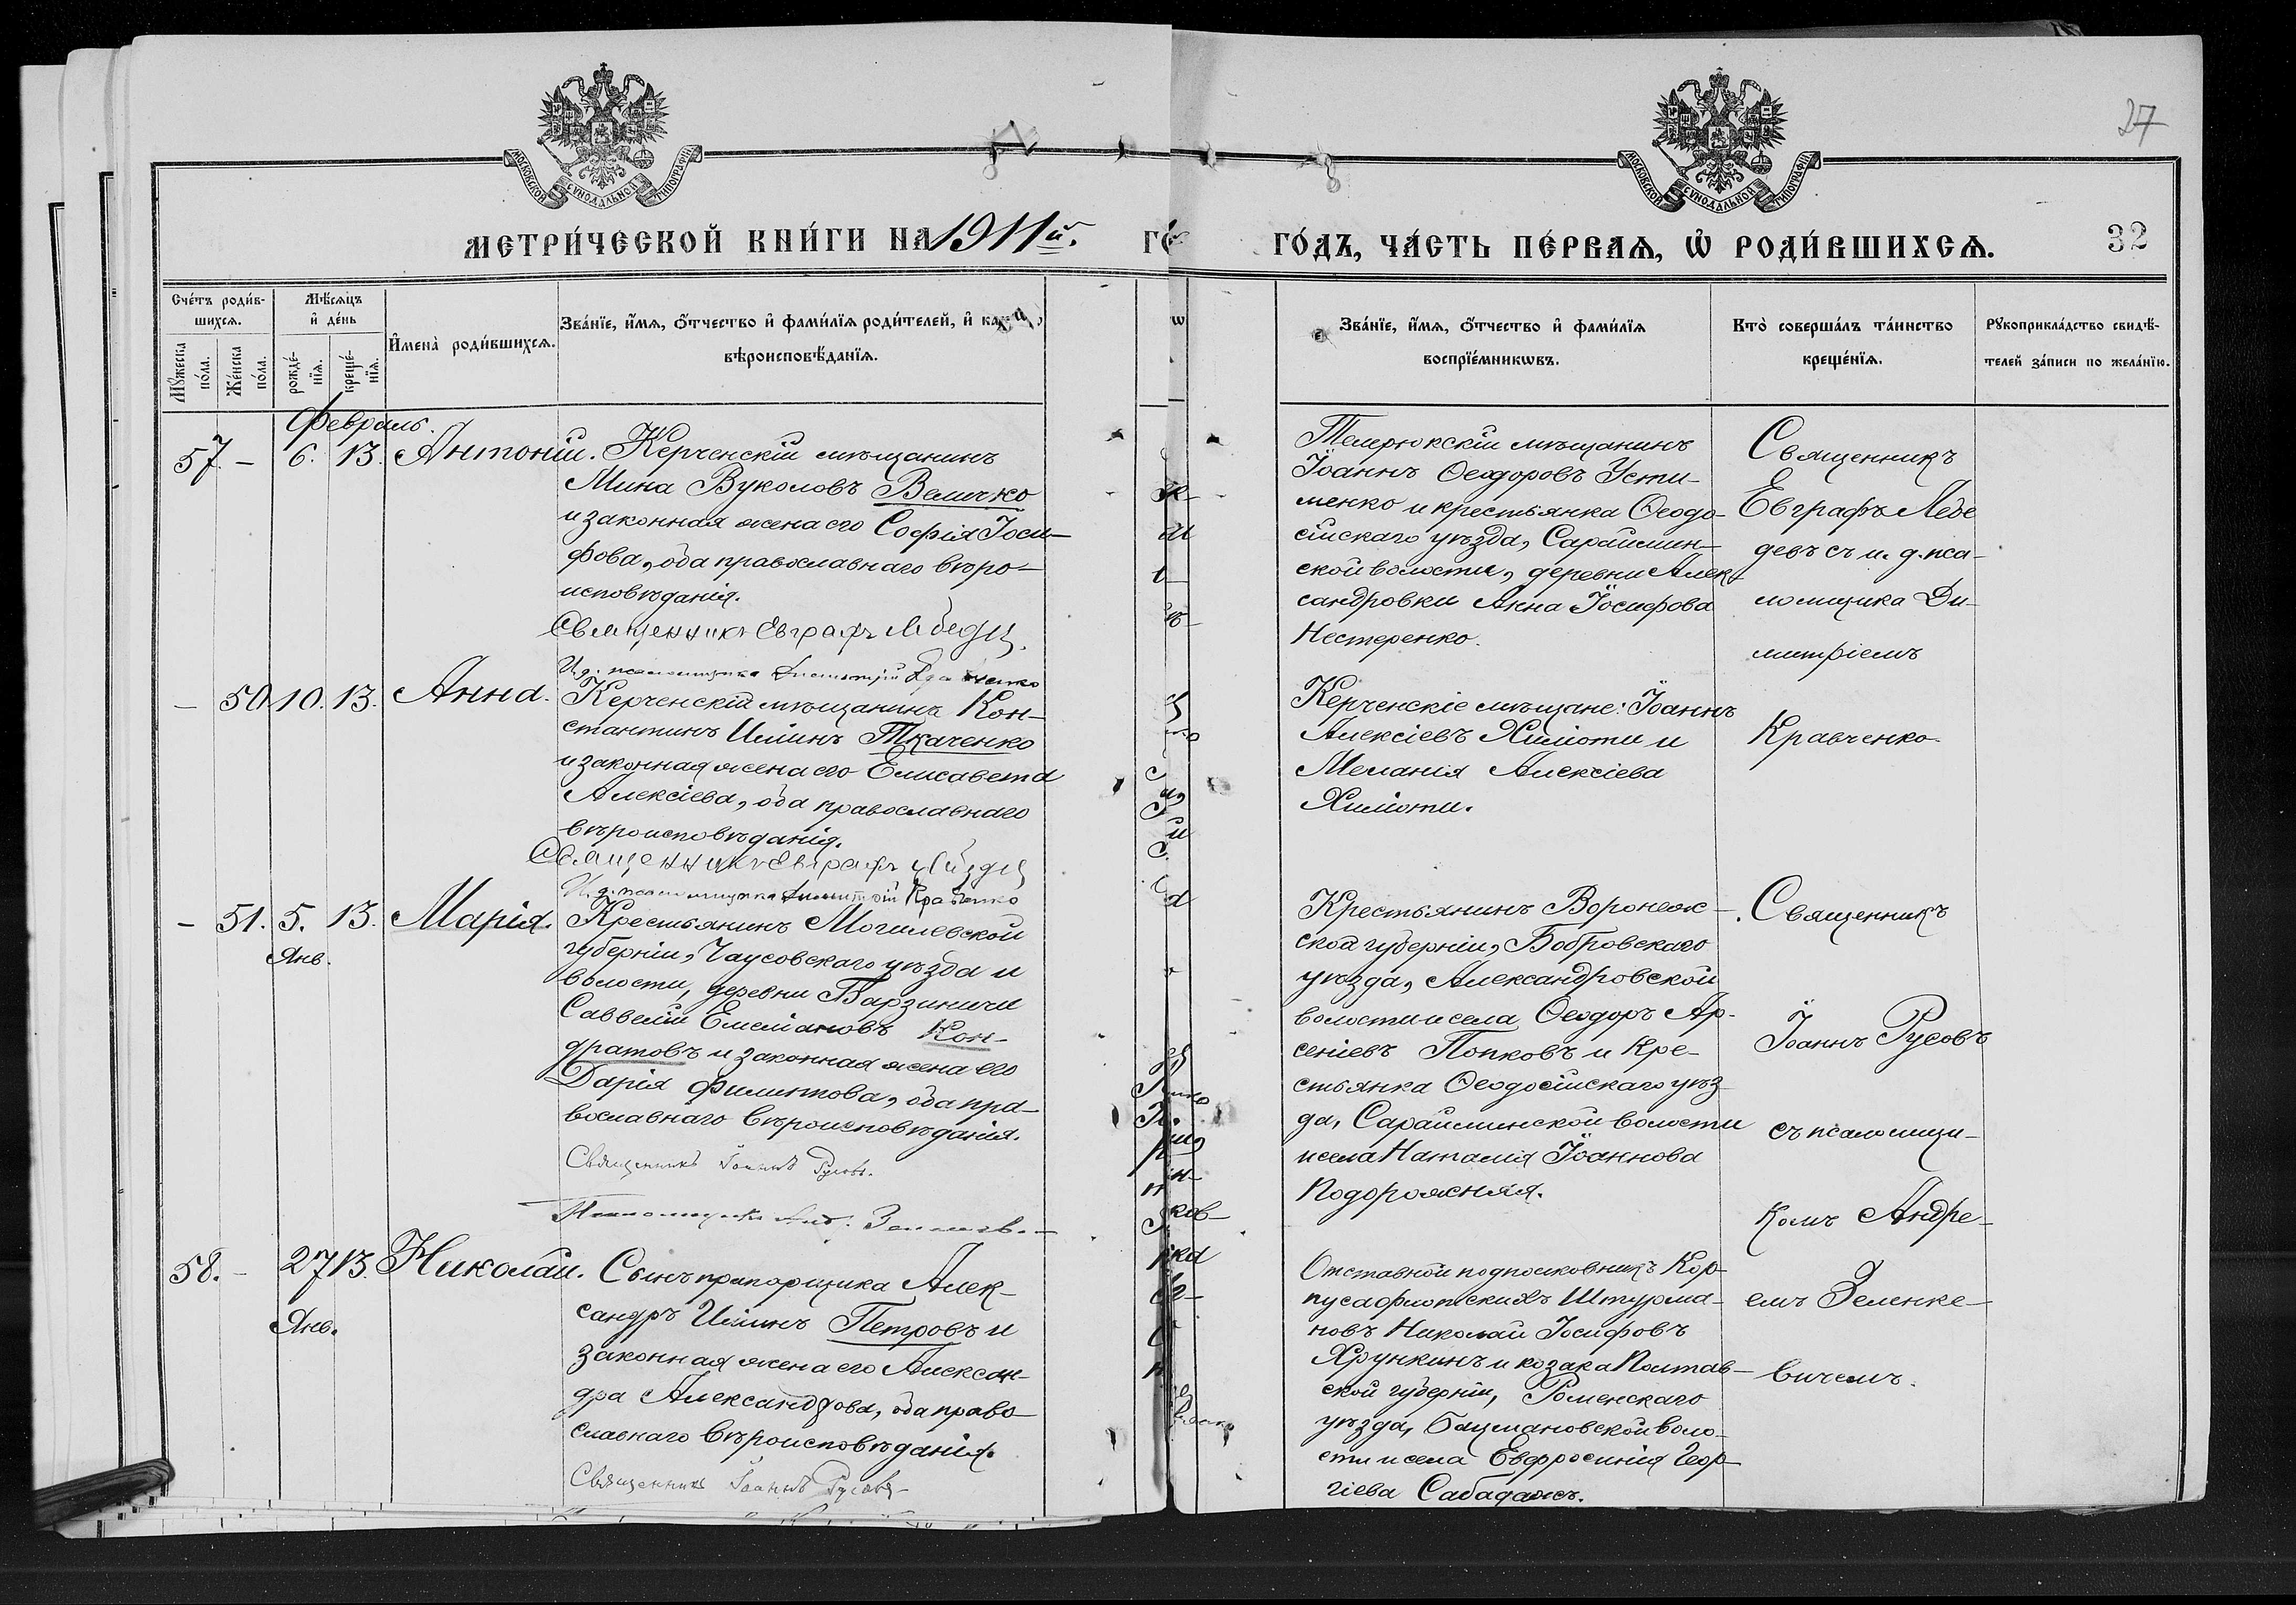 27
МОСКОВСКОЙ СѴНОДАЛЬНОЙ ТИПОГРАФІИ
МОСКОВСКОЙ СѴНОДАЛЬНОЙ ТИПОГРАФІИ
МЕТРИ́ЧЕСКОЙ КНИ́ГИ НА 1911й.
ГО́ДЪ, ЧА́СТЬ ПЕ́РВАѦ, Ѡ҆ РОДИ́ВШИХСѦ.
32
Сче́тъ роди́в-
шихсѧ.
Мꙋ́жеска
по́ла.
Же́нска
по́ла.
Мѣ́сѧцъ
и҆ де́нь
рожде́-
нїѧ.
креще́-
нїѧ.
И҆мена̀ роди́вшихсѧ.
Зва́нїе, и҆́мѧ, ѻ҆́тчество и҆ фами́лїѧ роди́телей, и҆
вѣроисповѣ́данїѧ.
Зва́нїе, и҆́мѧ, ѻ҆́тчество и҆ фами́лїѧ
воспрїе́мникѡвъ.
Кто̀ соверша́лъ та́инство
креще́нїѧ.
Рꙋкоприкла́дство свидѣ́-
телей за́писи по жела́нїю.
Февраль.
57. – 6. 13. Антоній.
Керченскій мѣщанинъ
Мина Вуколовъ Величко
и законная жена его Софія Іоси-
фова, оба православнаго вѣро-
исповѣданія.
Священникъ Евграфъ Лебедев
И.д. псаломщика Димитрій
Темрюкскій мѣщанинъ
Іоаннъ Ѳеодоровъ Усти-
менко и крестьянка Ѳеодо-
сійскаго уѣзда, Сараймин-
ской волости, деревни Алек-
сандровки Анна Іосифова
Нестеренко.
Священникъ
Евграфъ Лебе
девъ съ и. д. пса-
ломщика Ди-
митріемъ
Кравченко.
– 50. 10. 13. Анна.
Керченскій мѣщанинъ Кон-
стантинъ Илiинъ Ткаченко
и законная жена его Елисавета
Алексіева, оба православнаго
вѣроисповѣданія.
Священникъ Евграфъ
И.д. псаломщика Димитрій Кравченко
Керченскіе мѣщане: Іоаннъ
Алексіевъ Химіоти и
Меланія Алексіева
Химіоти.
– 51. 5. 13. Марія.
Янв.
Крестьянинъ Могилевской
губерніи, Чаусовскаго уѣзда и
волости, деревни Барзиничи
Саввелій Емеліановъ Кон-
дратовъ и законная жена его
Дарія Филиппова, оба пра-
вославнаго вѣроисповѣданія.
Священникъ Іоаннъ Русовъ.
Крестьянинъ Воронеж-
ской губерніи, Бобровскаго
уѣзда, Александровской
волости и села Ѳеодоръ Ар-
сеніевъ Попковъ и кре-
стьянка Ѳеодосійскаго уѣз-
да, Сарайминской волости
и села Наталія Іоаннова
Подорожняя.
Священникъ
Іоаннъ Русовъ
съ псаломщи-
комъ Андре-
емъ Зеленке-
вичемъ.
58. – 27 13. Николай.
Янв.
Сынъ прапорщика Алек-
сандръ Илiинъ Петровъ и
законная жена его Алексан-
дра Александрова, оба право-
славнаго вѣроисповѣданія.
Священникъ Іоаннъ Русовъ
Отставной подполковникъ Кор-
пуса флотскихъ Штурма-
новъ Николай Іосифовъ
Хрункинъ и козака Полтав-
ской губерніи, Роменскаго
уѣзда, Бацмановской воло-
сти и села Евфросинія Геор-
гіева Сабадажъ.